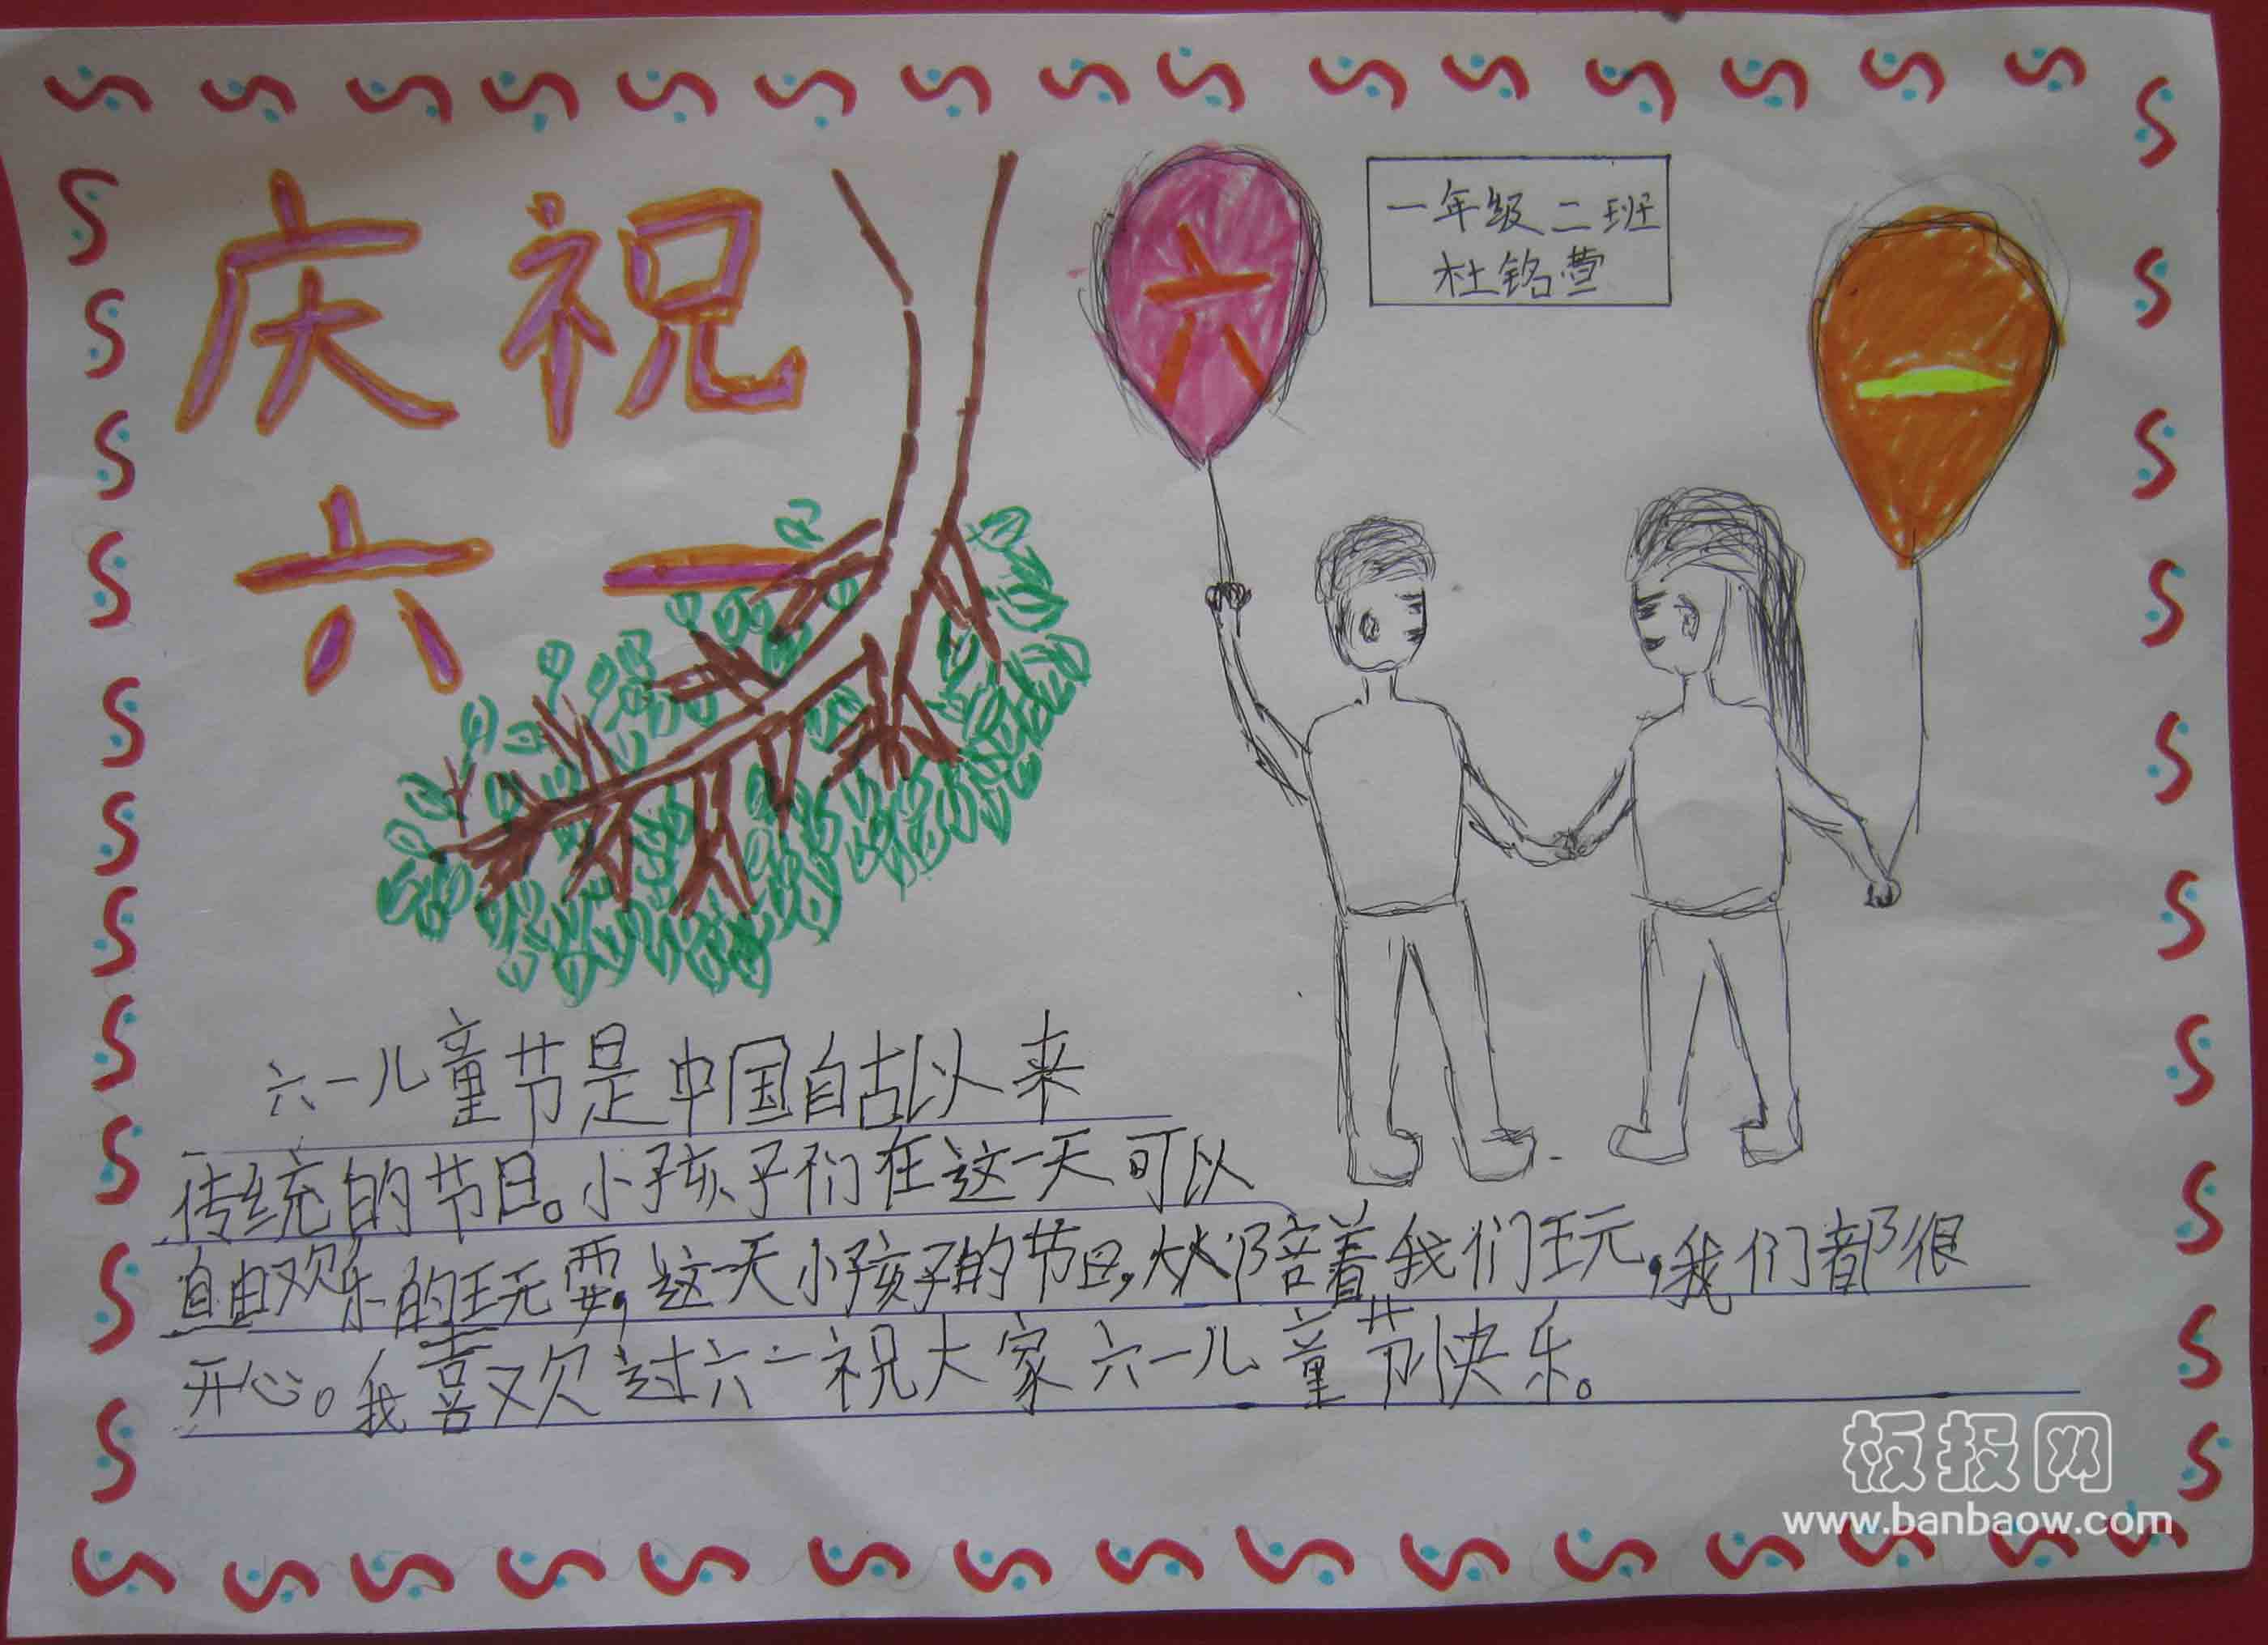 庆祝
六一
六
一年级二班
杜铭萱
一
六一儿童节是中国自古以来
传统的节日。小孩子们在这一天可以
自由欢乐的玩耍,这一天小孩子的节日,大人们陪着我们玩,我们都很
开心。我喜欢过六一祝大家六一儿童节快乐。
板报网
www.banbaow.com